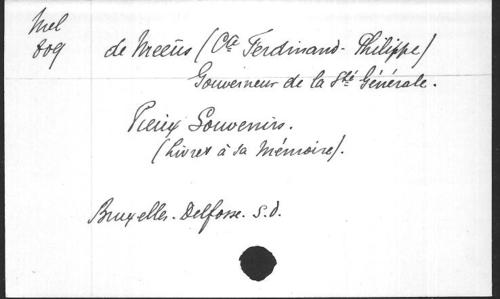 Mel
809
de Meeûs (Cte Ferdinand-Philippe)
Gouverneur de la Sté Générale.
Pieux Souvenirs.
(Livret à sa Mémoire).
Bruxelles. Delfosse. S.d.